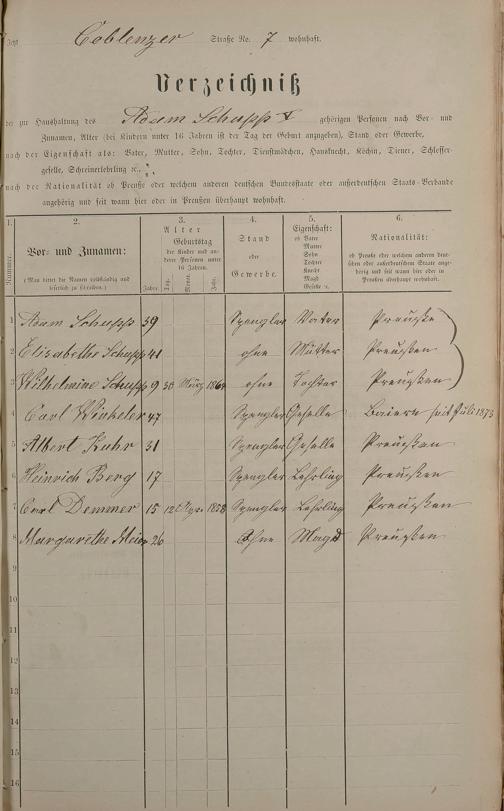 Jetzt Coblenzer Straße No. 7 wohnhaft.
Verzeichniß
der zur Haushaltung des Adam Schupp gehörigen Personen nach Vor- und
Zunamen, Alter (bei Kindern unter 16 Jahren ist der Tag der Geburt anzugeben), Stand oder Gewerbe,
nach der Eigenschaft als: Vater, Mutter, Sohn, Tochter, Dienstmädchen, Hausknecht, Köchin, Diener, Schlosser-
geselle, Schreinerlehrling ꝛc.,
nach der Nationalität ob Preuße oder welchem anderen deutschen Bundesstaate oder außerdeutschen Staats-Verbande
angehörig und seit wann hier oder in Preußen überhaupt wohnhaft.
1. 2. 3. 4. 5. 6.
Nummer. Vor- und Zunamen: (Man bittet die Namen vollständig und leserlich zu schreiben.)
Alter Geburtstag der Kinder und anderer Personen unter 16 Jahren.
Jahre Tag. Monat. Jahr.
Stand oder Gewerbe.
Eigenschaft: ob Vater Mutter Sohn Tochter Knecht Magd Geselle ꝛc.
Nationalität: ob Preuße oder welchem anderen deutschen oder außerdeutschen Staate angehörig und seit wann hier oder in Preussen überhaupt wohnhaft.
1 Adam Schupp 39 Spengler Vater Preuße
2 Elisabethe Schupp 41 ohne Mutter Preußen
3 Wilhelmine Schupp 9 30 März 1864 ohne Tochter Preußen
4 Carl Winkeler 47 Spengler Geselle Baiern seit Juli 1873
5 Albert Kuhr 31 Spengler Geselle Preußen
6 Heinrich Berg 17 Spengler Lehrling Preußen
7 Carl Demmer 15 12 Apr. 1858 Spengler Lehrling Preußen
8 Margarethe Meier 26 Ohne Magd Preußen
9
10
11
12
13
14
15
16